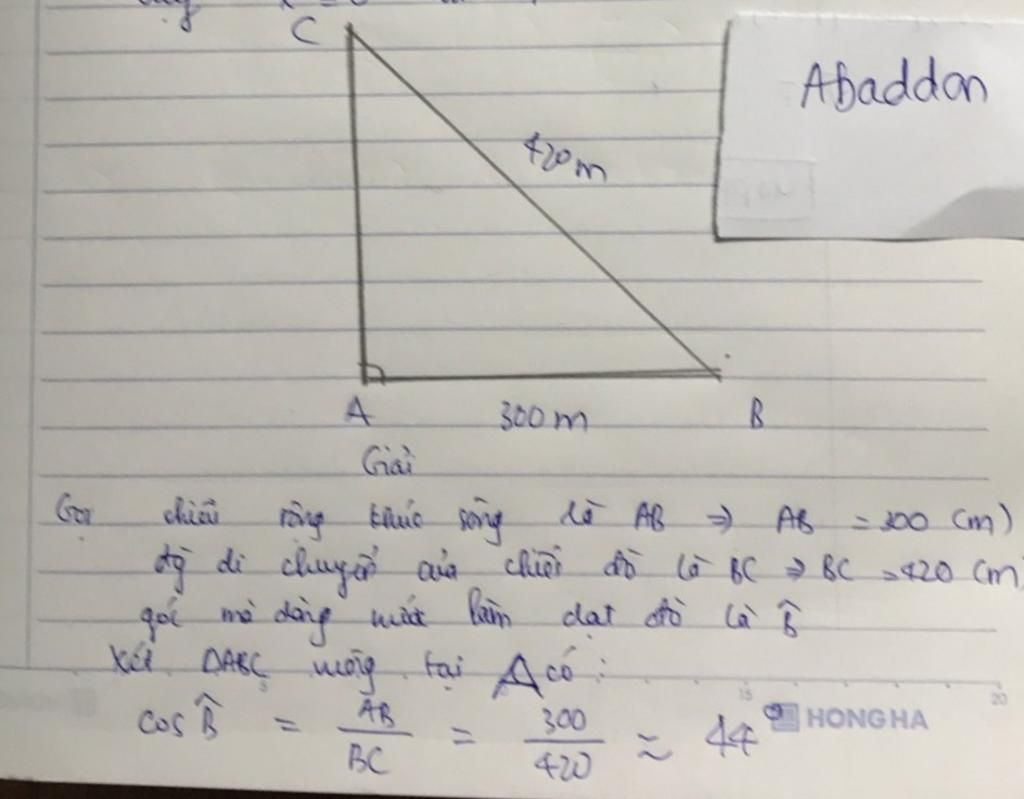 C
Abaddon
420m
A 300m B
Giải
Gọi chiều rộng khúc sông là AB ⇒ AB = 300 (m)
độ di chuyển của chiếc đò là BC ⇒ BC = 420 (m)
góc mà dòng nước làm dạt đò là B̂
Xét ΔABC vuông tại A có:
cos B̂ = AB/BC = 300/420 ≈ 44°
15 20
HONG HA